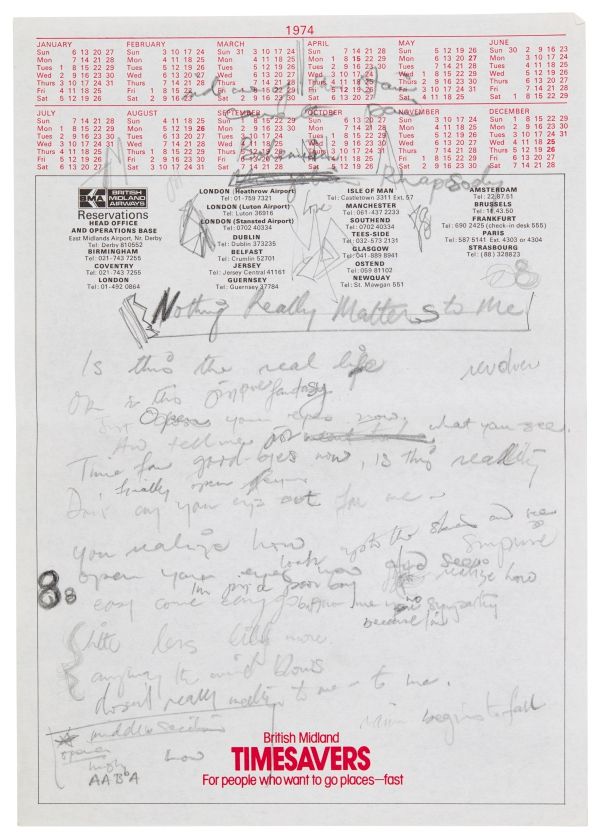 1974
JANUARY FEBRUARY MARCH APRIL MAY JUNE
Sun 6 13 20 27 Sun 3 10 17 24 Sun 31 3 10 17 24 Sun 7 14 21 28 Sun 5 12 19 26 Sun 30 2 9 16 23
Mon 7 14 21 28 Mon 4 11 18 25 Mon 4 11 18 25 Mon 1 8 15 22 29 Mon 6 13 20 27 Mon 3 10 17 24
Tues 1 8 15 22 29 Tues 5 12 19 26 Tues 5 12 19 26 Tues 2 9 16 23 30 Tues 7 14 21 28 Tues 4 11 18 25
Wed 2 9 16 23 30 Wed 6 13 20 27 Wed 6 13 20 27 Wed 3 10 17 24 Wed 1 8 15 22 29 Wed 5 12 19 26
Thurs 3 10 17 24 31 Thurs 7 14 21 28 Thurs 7 14 21 28 Thurs 4 11 18 25 Thurs 2 9 16 23 30 Thurs 6 13 20 27
Fri 4 11 18 25 Fri 1 8 15 22 Fri 1 8 15 22 29 Fri 5 12 19 26 Fri 3 10 17 24 31 Fri 7 14 21 28
Sat 5 12 19 26 Sat 2 9 16 23 Sat 2 9 16 23 30 Sat 6 13 20 27 Sat 4 11 18 25 Sat 1 8 15 22 29
JULY AUGUST SEPTEMBER OCTOBER NOVEMBER DECEMBER
Sun 7 14 21 28 Sun 4 11 18 25 Sun 1 8 15 22 29 Sun 6 13 20 27 Sun 3 10 17 24 Sun 1 8 15 22 29
Mon 1 8 15 22 29 Mon 5 12 19 26 Mon 2 9 16 23 30 Mon 7 14 21 28 Mon 4 11 18 25 Mon 2 9 16 23 30
Tues 2 9 16 23 30 Tues 6 13 20 27 Tues 3 10 17 24 Tues 1 8 15 22 29 Tues 5 12 19 26 Tues 3 10 17 24 31
Wed 3 10 17 24 31 Wed 7 14 21 28 Wed 4 11 18 25 Wed 2 9 16 23 30 Wed 6 13 20 27 Wed 4 11 18 25
Thurs 4 11 18 25 Thurs 1 8 15 22 29 Thurs 5 12 19 26 Thurs 3 10 17 24 31 Thurs 7 14 21 28 Thurs 5 12 19 26
Fri 5 12 19 26 Fri 2 9 16 23 30 Fri 6 13 20 27 Fri 4 11 18 25 Fri 1 8 15 22 29 Fri 6 13 20 27
Sat 6 13 20 27 Sat 3 10 17 24 31 Sat 7 14 21 28 Sat 5 12 19 26 Sat 2 9 16 23 30 Sat 7 14 21 28
Bohemian
Rhapsody
BMA BRITISH MIDLAND AIRWAYS
Reservations
HEAD OFFICE
AND OPERATIONS BASE
East Midlands Airport, Nr. Derby
Tel: Derby 810552
BIRMINGHAM
Tel: 021-743 7255
COVENTRY
Tel: 021-743 7255
LONDON
Tel: 01-492 0864
LONDON (Heathrow Airport)
Tel: 01-759 7321
LONDON (Luton Airport)
Tel: Luton 36916
LONDON (Stansted Airport)
Tel: 0702 40334
DUBLIN
Tel: Dublin 373235
BELFAST
Tel: Crumlin 52701
JERSEY
Tel: Jersey Central 41161
GUERNSEY
Tel: Guernsey 37784
Love
ISLE OF MAN
Tel: Castletown 3311 Ext. 57
MANCHESTER
Tel: 061-437 2233
SOUTHEND
Tel: 0702 40334
TEES-SIDE
Tel: 032-573 2131
GLASGOW
Tel: 041-889 8941
OSTEND
Tel: 059 81102
NEWQUAY
Tel: St. Mawgan 551
AMSTERDAM
Tel: 22.87.51
BRUSSELS
Tel: 18.43.50
FRANKFURT
Tel: 690 2425 (check-in desk 555)
PARIS
Tel: 587 5141 Ext. 4303 or 4304
STRASBOURG
Tel: (88) 328823
8
Nothing Really Matters to Me
Is this the real life
revolver
Or is this just fantasy
just Open your eyes now,
And tell me what you see.
Time for good-byes now, is this reality
finally open
Don't cry your eyes out for me
you realize how
look up to the skies and see
surprise
open your eyes now
realize how
8 8
I'm just a poor boy
easy come easy go
no sympathy
because I'm
little less little more.
anyway the wind blows
doesn't really matter to me - to me.
middle section
rain begins to fall
opera
high
AABbA
now
British Midland
TIMESAVERS
For people who want to go places—fast